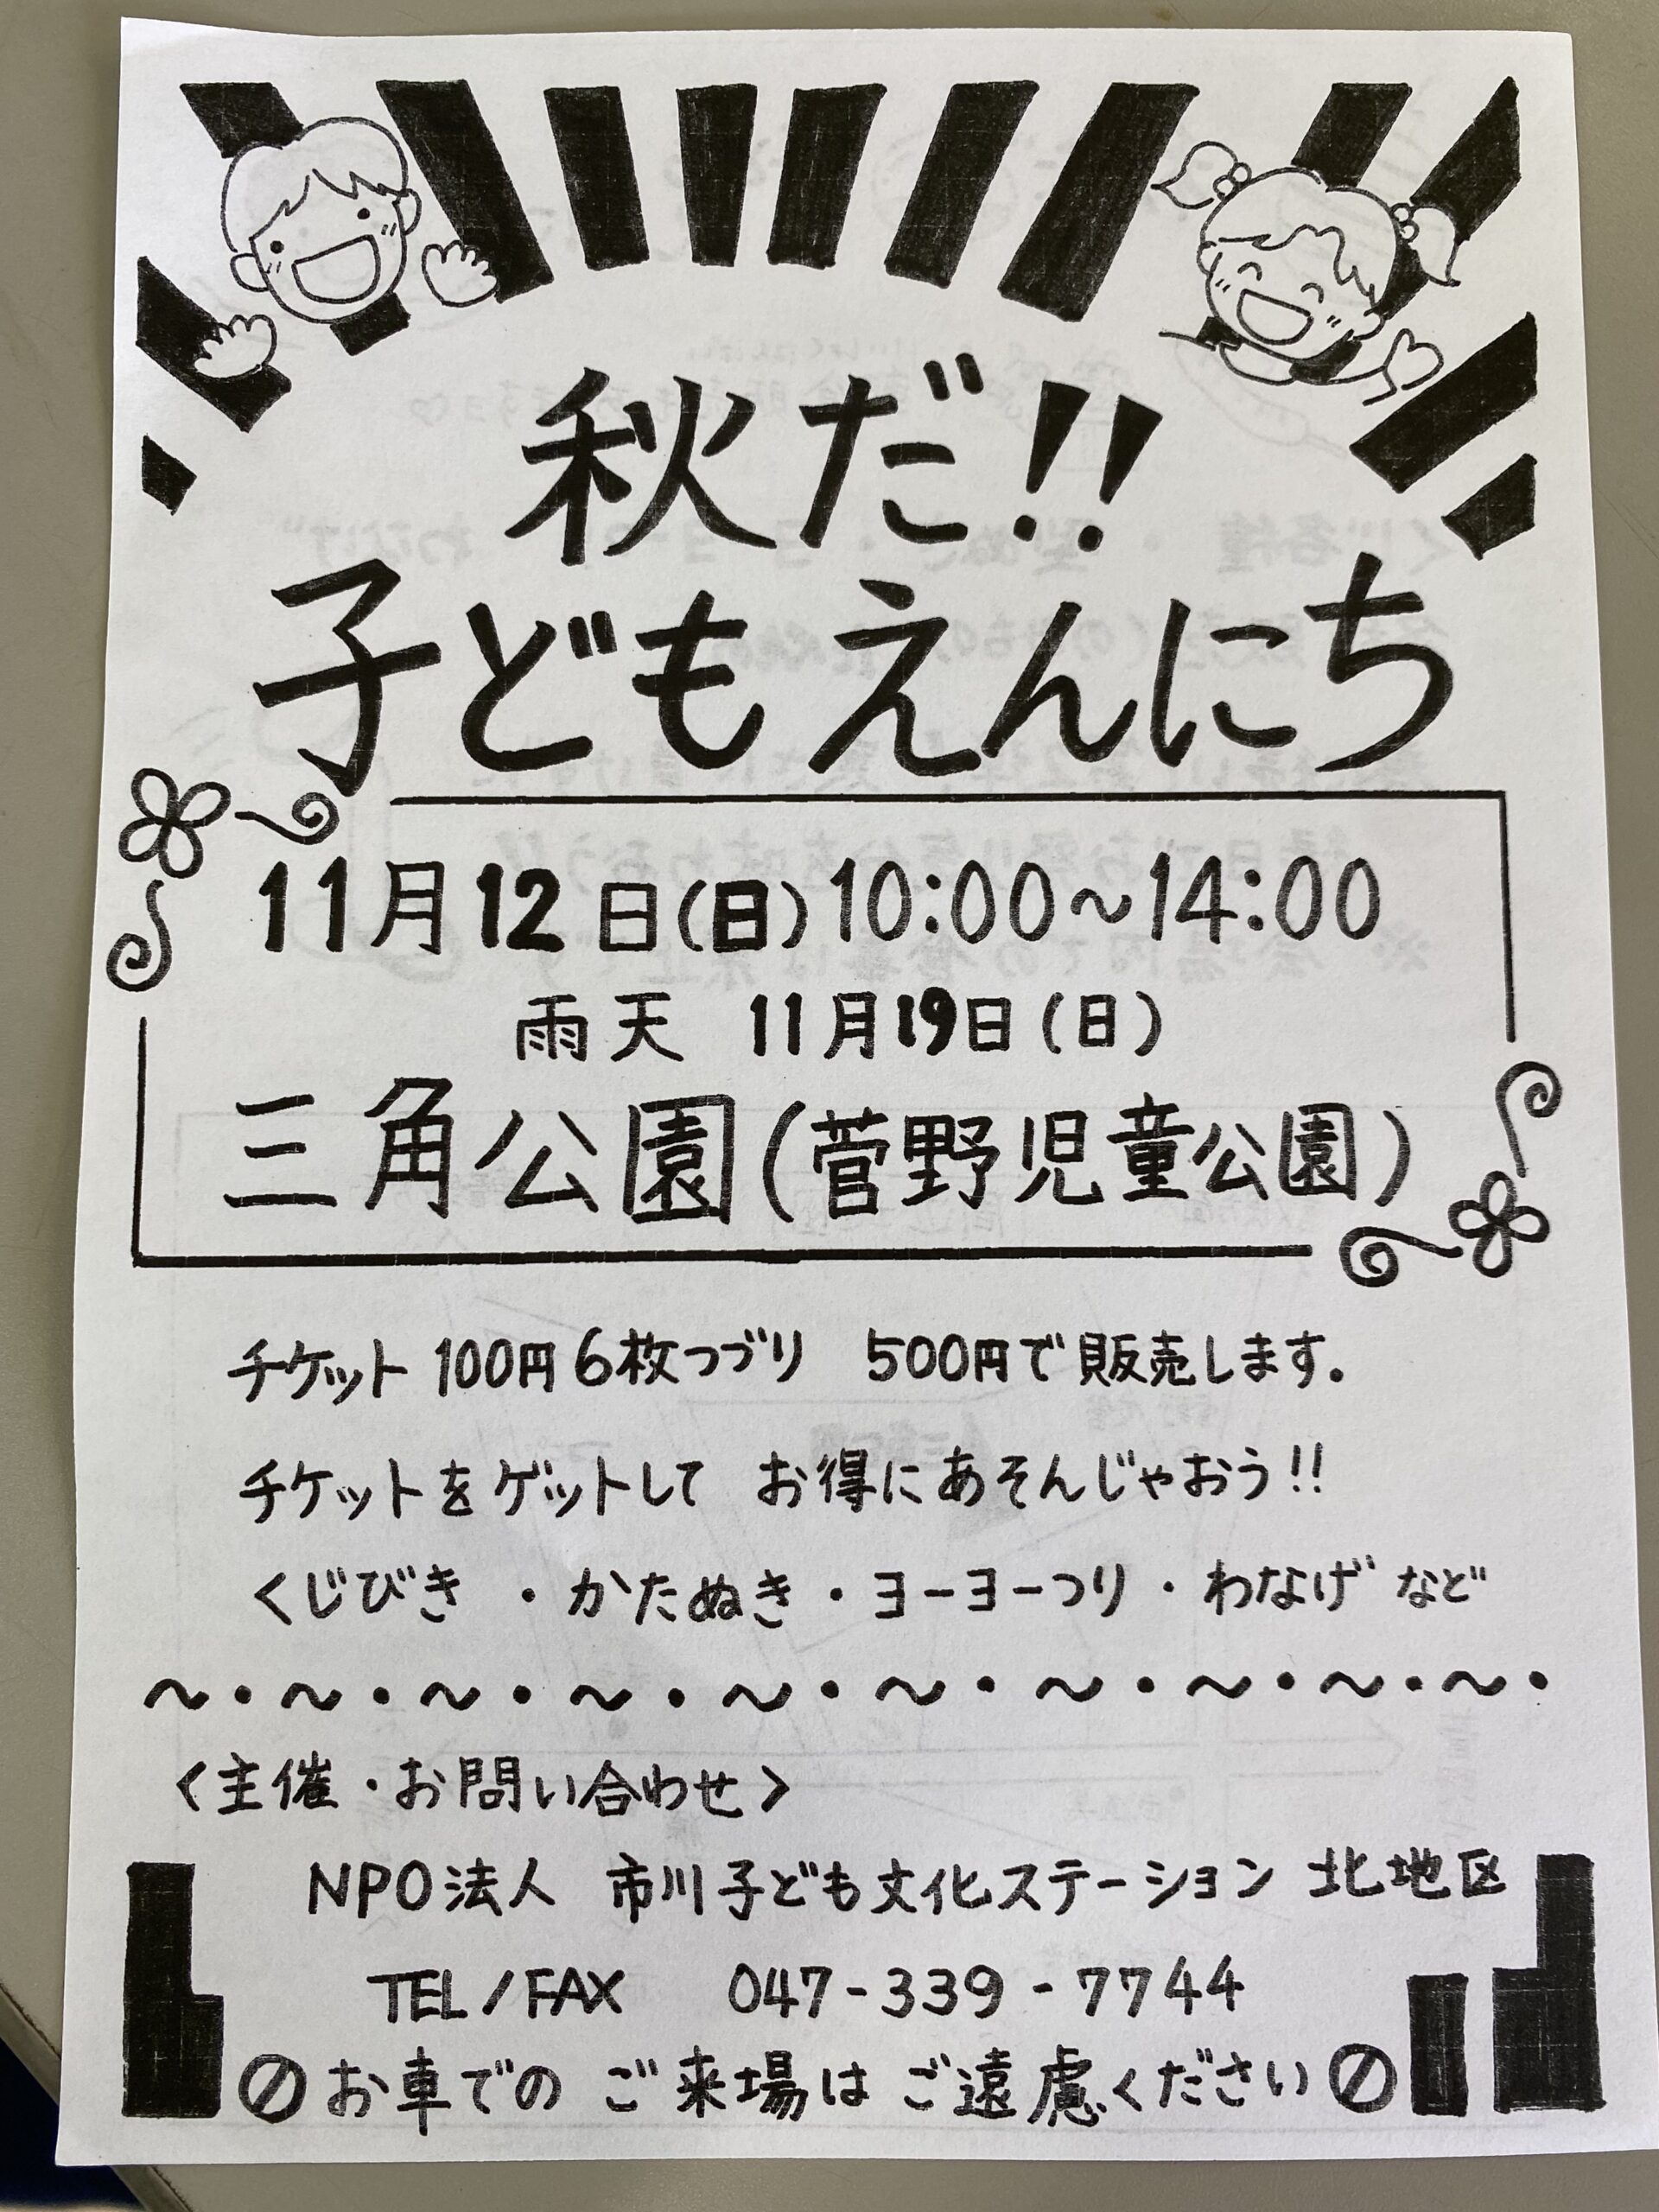 秋だ!!
子どもえんにち
11月12日(日)10:00~14:00
雨天 11月19日(日)
三角公園(菅野児童公園)
チケット 100円6枚つづり 500円で販売します.
チケットをゲットして お得にあそんじゃおう!!
くじびき ・かたぬき・ヨーヨーつり・わなげなど
〜・〜・〜・〜・〜・〜・〜・〜・〜・〜・
〈主催・お問い合わせ〉
NPO法人 市川子ども文化ステーション 北地区
TEL/FAX 047-339-7744
⊘お車でのご来場はご遠慮ください⊘